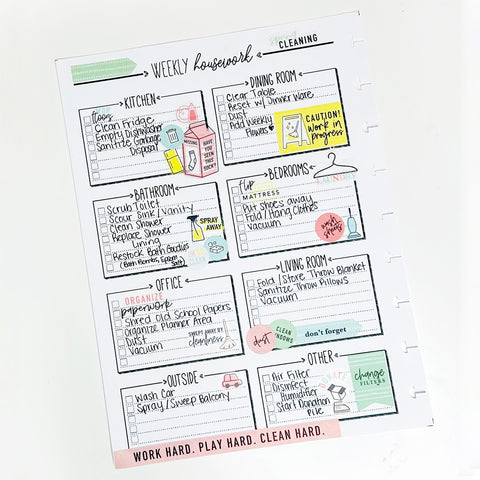 CLEANING
WEEKLY housework
KITCHEN
floors
Clean Fridge
Empty Dishwasher
Sanitize Garbage
Disposal
MISSING
HAVE YOU SEEN THIS SOCK?
DINING ROOM
Clear Table
Reset w/ Dinner Ware
Dust
Add Weekly
Flowers
CAUTION!
Work in
progress
BATHROOM
Scrub Toilet
Scour Sink/Vanity
Clean Shower
Replace Shower
Lining
Restock Bath Goodies
(Bath Bombs, Epsom
Salt)
SPRAY
AWAY
BEDROOMS
flip
MATTRESS
Put shoes away
Fold/Hang Clothes
Vacuum
wash
sheets
OFFICE
ORGANIZE
paperwork
Shred Old School Papers
Organize Planner Area
Dust
Vacuum
cleanliness
LIVING ROOM
Fold/Store Throw Blanket
Sanitize Throw Pillows
Vacuum
dust
CLEAN
WINDOWS
don't forget
OUTSIDE
Wash Car
Spray/Sweep Balcony
OTHER
Air Filter
Disinfect
Humidifier
Start Donation
Pile
change
FILTERS
WORK HARD. PLAY HARD. CLEAN HARD.